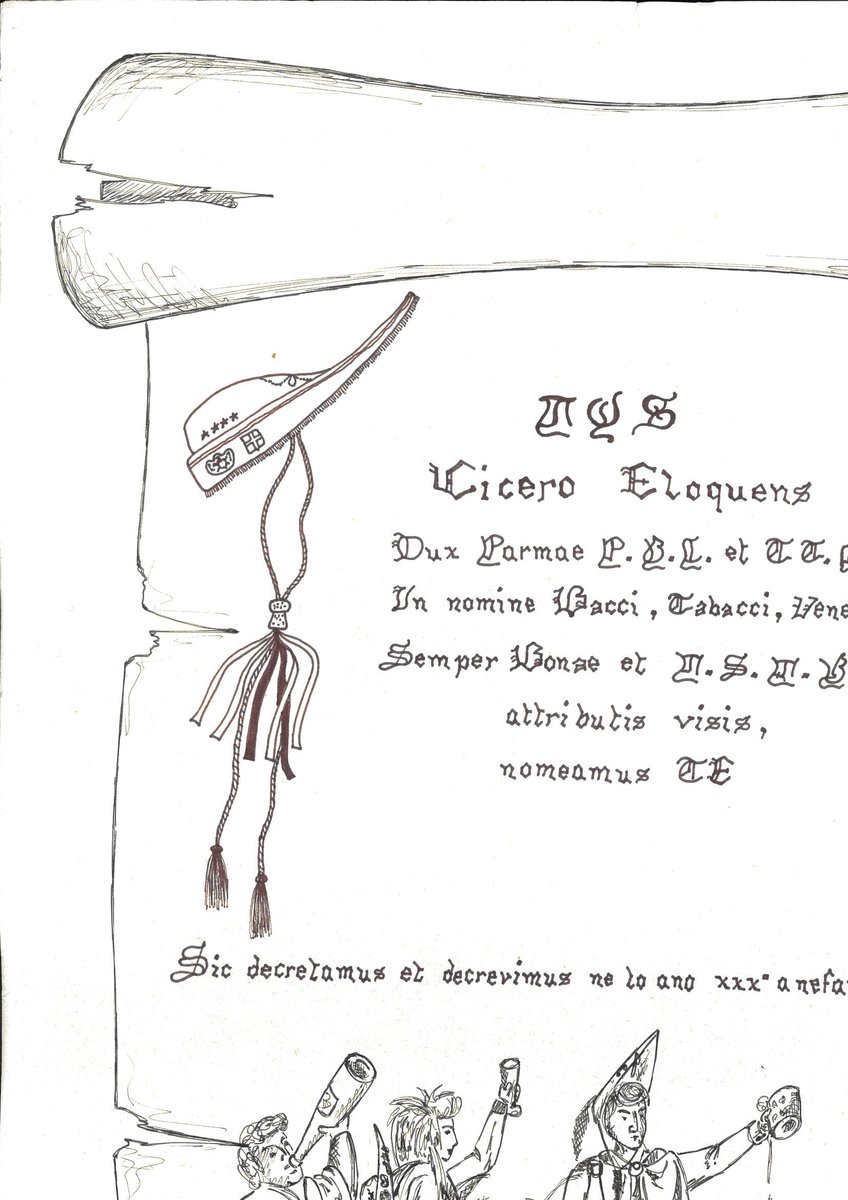 NOS
Cicero Eloquens
Dux Parmae P.B.L. et
In nomine Bacci, Tabacci, Vene
Semper Bonae et
attributis visis,
nomeamus TE
Sic decretamus et decrevimus ne lo ano xxx° a nefa